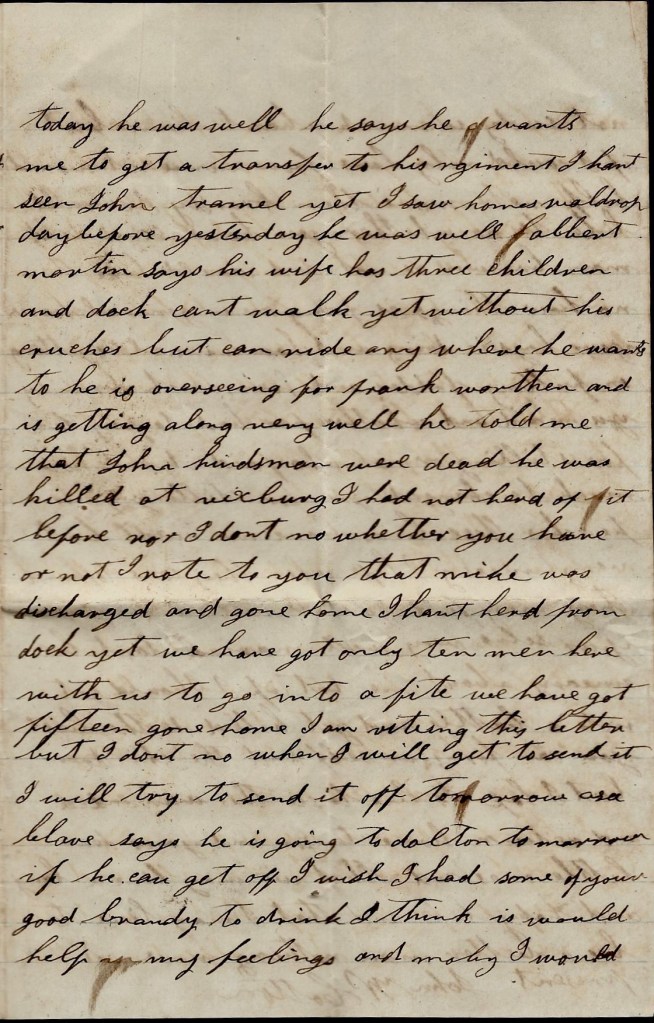 today he was well he says he wants
me to get a transfer to his rgiment I hant
seen John tramel yet I saw homes waldrop
day before yesterday he was well abbert
martin says his wife has three children
and dock cant walk yet without his
cruches but can ride any where he wants
to he is overseeing for frank worthen and
is getting along very well he told me
that John hindsman were dead he was
killed at vixburg I had not herd of it
before nor I dont no whether you have
or not I rote to you that mike was
discharged and gone home I hant herd from
dock yet we have got only ten men here
with us to go into a fite we have got
fifteen gone home I am riting this letter
but I dont no when I will get to send it
I will try to send it off tomorrow asa
blave says he is going to dalton to marrow
if he can get off I wish I had some of your
good brandy to drink I think is would
help my feelings and maby I would